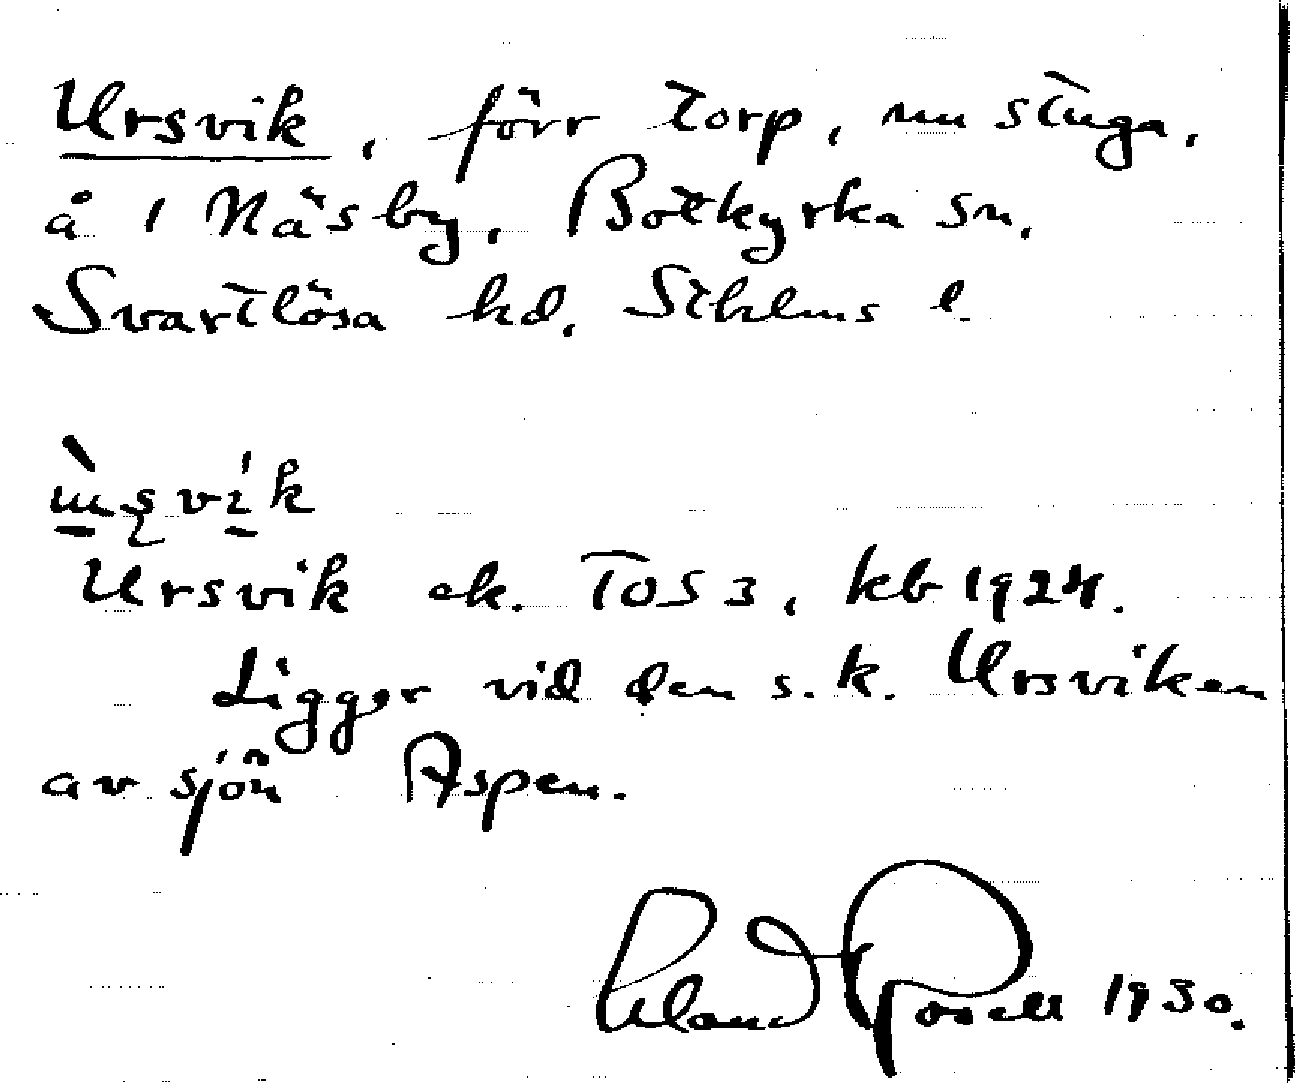 Ursvik, förr torp, nu stuga,
å 1 Näsby, Botkyrka sn,
Svartlösa hd, Sthlms l.
Ursvik ek. TOS 3, kb 1924.
Ligger vid den s.k. Ursviken
av sjön Aspen.
Rosell 1930.